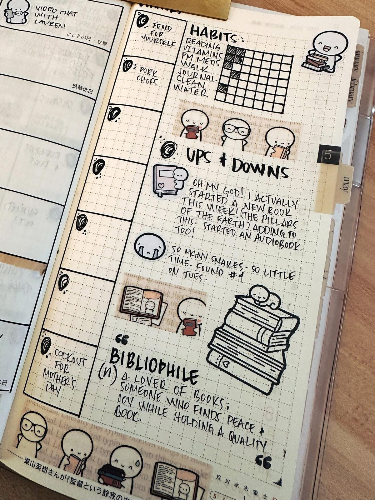 VIDEO CHAT
WITH
LAUREN!
FEND
FOR
YOURSELF
PORK
CHOPS
COOKOUT
FOR
MOTHER'S
DAY
HABITS:
READING
VITAMINS
PM MEDS
WALK
JOURNAL
CLEAN
WATER
UPS & DOWNS
OH MY GOD! I ACTUALLY
STARTED A NEW BOOK
THIS WEEK! (THE PILLARS
OF THE EARTH) ADDING TO
THIS, STARTED AN AUDIOBOOK
TOO!
SO MANY SNAKES. SO LITTLE
TIME. FOUND #4
ON TUES.
"
BIBLIOPHILE
(n) A LOVER OF BOOKS;
SOMEONE WHO FINDS PEACE &
JOY WHILE HOLDING A QUALITY
BOOK.
"